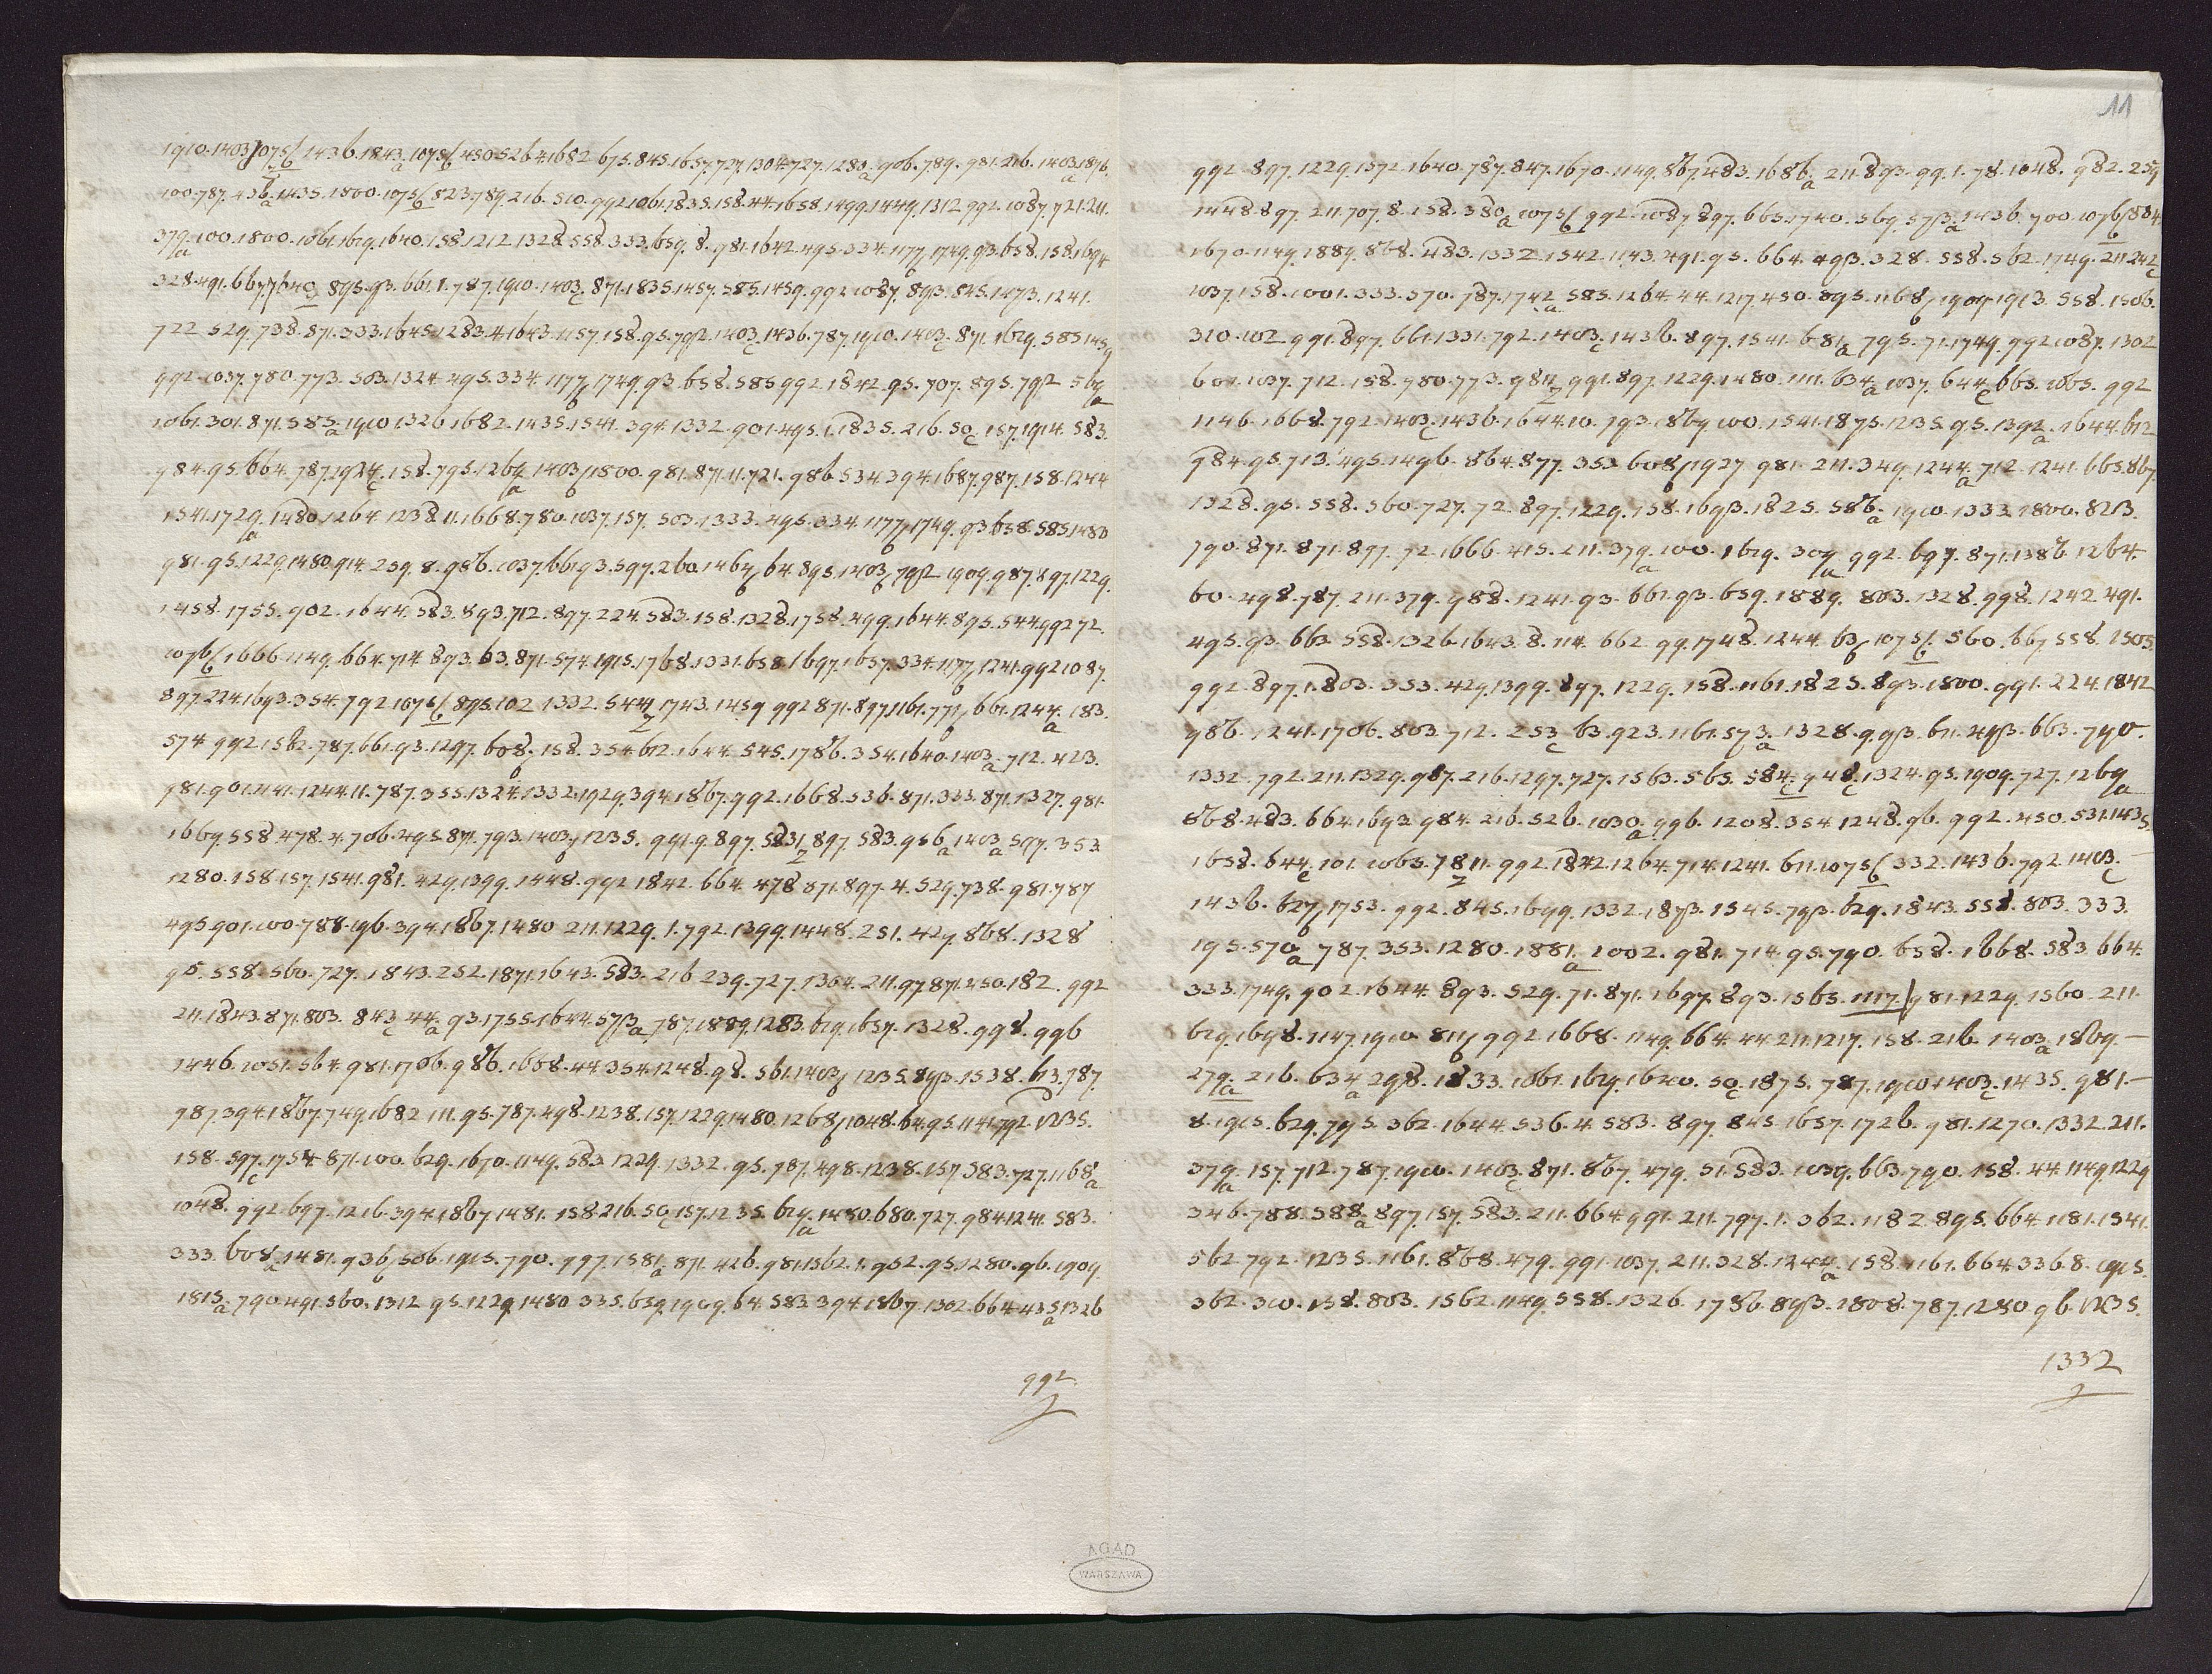 1910.1403/1075/6.1436.1843a.1075/6.450.5264.1682 675.845.1657.727.1304.727.1280a.906.789.981.216.1403.1876.
100.787.436a.1435.1800.1075/6 823.789.216.510.992.1061.1835.158.44.1658.1499.1449.1312.992.1087.721.211.
379a.100.1800.1061.1629.1640.158.1212.1328.558.333.659.8.781.1642.495.334.1177/6.1749.93.658.158.1694
328.491.667. 895.93.661.1.787.1910.1403c.871.1835.1457.585.1459.992.1087.893.845.1473.1241.
722.529.738.871.333.1645.1283.4.1643.1157.158.95.792.1403c.1436.787.1910.1403c.871.1629.585.1459
992.1037.780.773.503.1324.495.334.1177/6.1749.93.658.585.992.1842.95.707.895.792 569a
1061.301.871.585a.1910.1326.1682.1435.1541.394.1332.901.495.1.1835.216.50c.157.1914.583.
984.95.664.787.1924c.158.795.1269a.1403/6.1800.981.871.11.721.986.534.394.1687.987.158.1244
1541.1729a.1480.1264.1238.11.1668.780.1037.157.503.1333.495.334.1177/6.1749.93.658.585.1480
981.95.1229.1480.914.259.8.986.1037.661.93.597.260.1464/6.64.895.1403/6.792.1909.987.897.1229.
1458.1755.902.1644.583.893.712.897.224.583.158.1328.1758.499.1644.895.544.992.72.
1076/6.1666.1149.664.714.893.63.871.574.1915.1768.1331.658.1697.1657.334.1177/6.1241.992.1087.
897.224.1693.354.792.1075/6.895.102.1332.544z.1743.1459.992.871.897.1161.771/6.661.1244a.183.
574.992.1562.787.661.93.1297.608/6.158.354.612.1644.545.1786.354.1640.1403a.712.423.
981.901.441.1244.11.787.355.1324.1332.1929.394.1867.992.1668.536.871.333.871.1327.981.
1669.558.478.4.706.495.871.793.1403/6.1235.991.9.897.5831z.897.583.956a.1403a.597.353
1280.158.157.1541.981.429.1399.1448.992.1842.664.478.871.897.4.529.738.981.787
495.901.100.788.196.394.1867.1480.211.1229.1.792.1399.1448.251.429.868.1328
95.558.560.727.1843.252.1871.1643.583.216.239.727.1304.211.97.871.450.182.992
211.1843.871.803.843c.44a.93.1755.1644.573a.787.1889.1283.629.1657.1328.998.996
1446.1051.564.981.1706.986.1668.44.354.1248.98.561.1403/.1235.893.1538.613.787.
987.394.1867.749.1682.111.95.787.498.1238.157.1229.1480.1268/1048.64.95.1141.792.1235.
158.597c.1754.871.100.629.1670.1149.583.1229.1332.95.787.498.1238.157.583.727.1168a
1048.992.697.1216.394.1867.1481.158.216.50c.157.1235.629a.1480.680.727.984.1241.583.
333.608a.1481.936c.506.1915.790.997.1581a.871.426.981.1562.1.952.95.1280.96.1909.
1815a.790.491.560.1312.95.1229.1480.335.659.1909.64.583.394.1867.1302.664.435a.1326
992
11
992.897.1229.1372.1640.787.847.1670.1149.867.483.1686a.211.893.99.1.78.1048.982.259
1448.897.211.707.8.158.380a.1075/6.992.1087.897.665.1740.569.573a.1436.700.1076/6.884
1670.1149.1889.868.483.1332.1542.1143.491.95.664.493.328.558.562.1749.211.242c
1037.158.1001.333.570.787.1742a.585.1264.44.1217.450.895.1168/6.1909.1913.558.1506.
310.102.991.897.661.1331.792.1403c.1436.897.1541.681a.795.71.1749.992.1087.1302
601.1037.712.158.780.773.9811z.991.897.1229.1480.1111.634a.1037.644c.665.1065.992
1146.1668.792.1403c.1436.1644.10.793.1869.100.1541.1875.1235.95.1392a.1644.612
984.95.713.495.1496.864.877.353.608/6.1927.981.211.349.1244a.712.1241.665.867.
1328.95.558.560.727.72.897.1229.158.1693.1825.586a.1910.1333.1800.823.
790.871.871.897.72.1666.415.211.379a.100.1629.309a.992.697.871.1386.1264.
60.498.787.211.379.988.1241.93.661.93.659.1889.803.1328.998.1242.491.
495.93.663.558.1326.1643.8.114.662.99.1748.1244.63/6.1075/6.560.667.558.1505.
992.897.1.803.353.429.1399.897.1229.158.1161.1825.893.1800.991.224.1842
986.1241.1706.803.712.253c.63.923.1161.573a.1328.9.93.611.493.663.790.
1332.792.211.1329.987.216.1297.727.1563.565.584c.948c.1324.95.1909.727.1269a
868.483.664.1693.984.216.526.1030a.996.1208.354.1248.96.992.450.531.1435.
1658.644c.101.1065.7811z.992.1842.1264.714.1241.611.1075/6.332.1436.792.1403c.
1436.627/6.1753.992.845.1699.1332.1873.1545.793.629.1843.558.803.333.
195.570a.787.353.1280.1881a.1002.981.714.95.790.658.1668.583.664.
333.1749.902.1644.893.529.71.871.1697.893.1565.1117./981.1229.1560.211.
629.1698.1147.1910.811/6.992.1668.1149.664.44.211.1217.158.216.1403a.1869.
279a.216.634a.298.1833.1061.1629.1620.50c.1875.787.1910.1403c.1435.981.
8.1915.629.795.362.1644.536.4.583.897.845.1657.1726.981.1270.1332.211.
379a.157.712.787.1910.1403c.871.867.479.51.583.1039.663.790.158.44.1149.1229
346.788.588a.897.157.583.211.664.991.211.797.1.362.1182.895.664.1181.1541.
562.792.1235.1161.868.479.991.1037.211.328.1244a.158.1161.664.3368.1915.
362.310.158.803.1562.1149.558.1326.1786.893.1808.787.1280.96.1235.
1332
AGAD
WARSZAWA